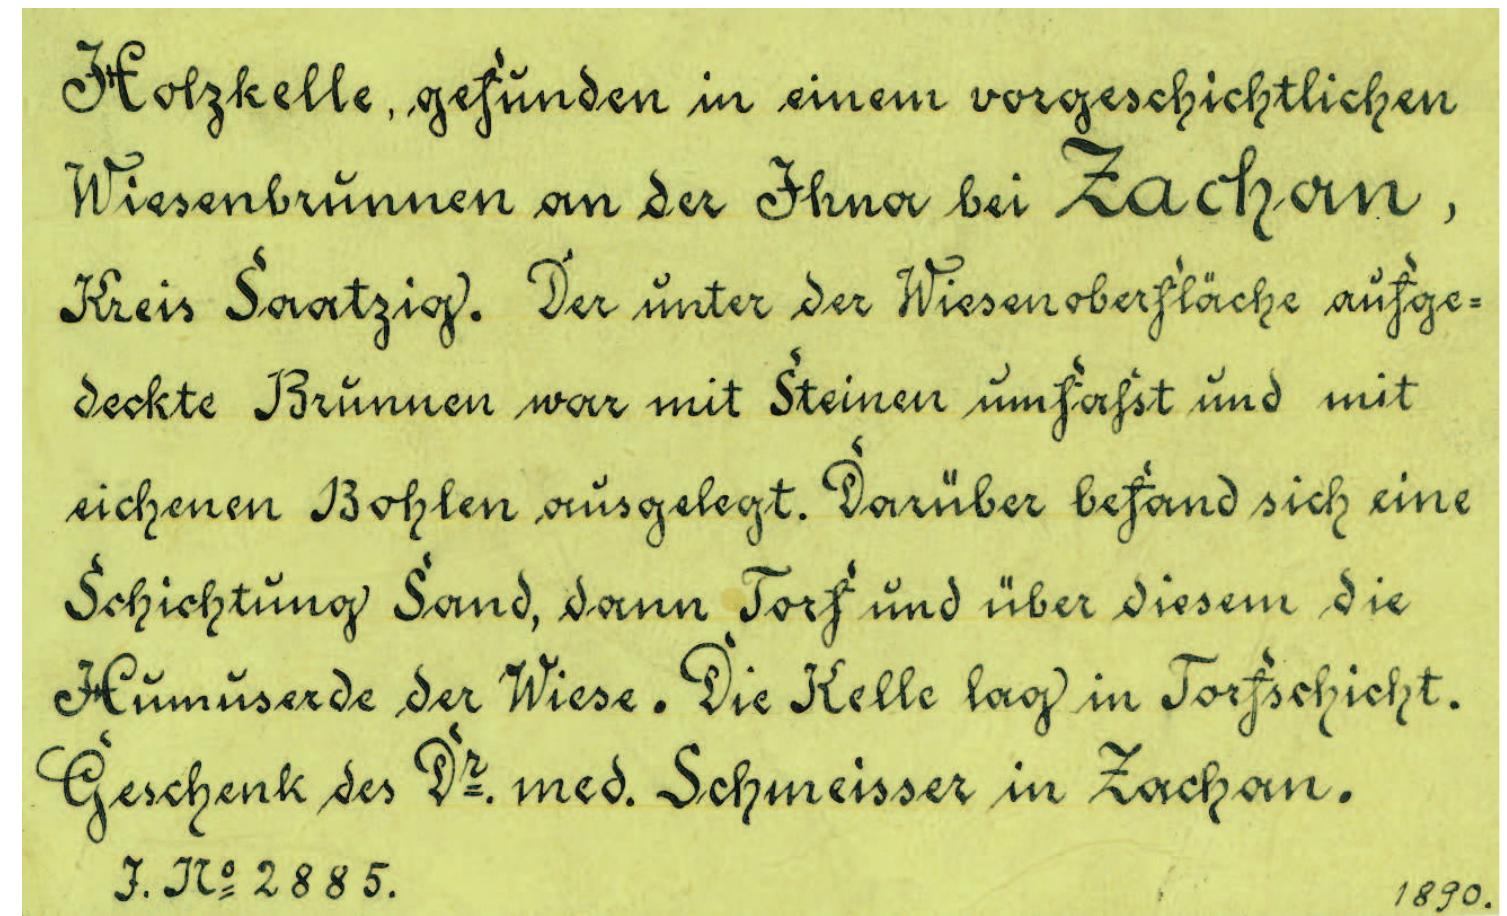 Holzkelle, gefunden in einem vorgeschichtlichen
Wiesenbrunnen an der Ihna bei Zachan,
Kreis Saatzig. Der unter der Wiesenoberfläche aufge=
deckte Brunnen war mit Steinen umfaſst und mit
eichenen Bohlen ausgelegt. Darüber befand sich eine
Schichtung Sand, dann Torf und über diesem die
Humuserde der Wiese. Die Kelle lag in Torfschicht.
Geschenk des Dr. med. Schmeisser in Zachan.
J. No 2885.
1890.